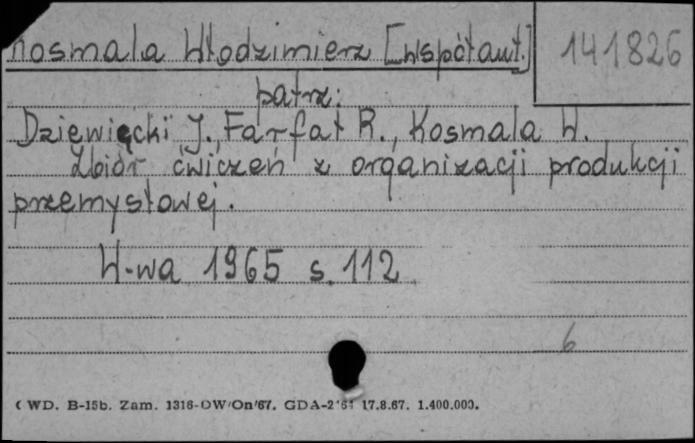 Kosmala Włodzimierz [współaut.]
141826
patrz:
Dziewięcki J., Farfat R., Kosmala W.
Zbiór ćwiczeń z organizacji produkcji
przemysłowej.
W-wa 1965 s. 112
6
CWD. B-15b. Zam. 1316-DW/On/67. GDA- 17.8.67. 1.400.000.